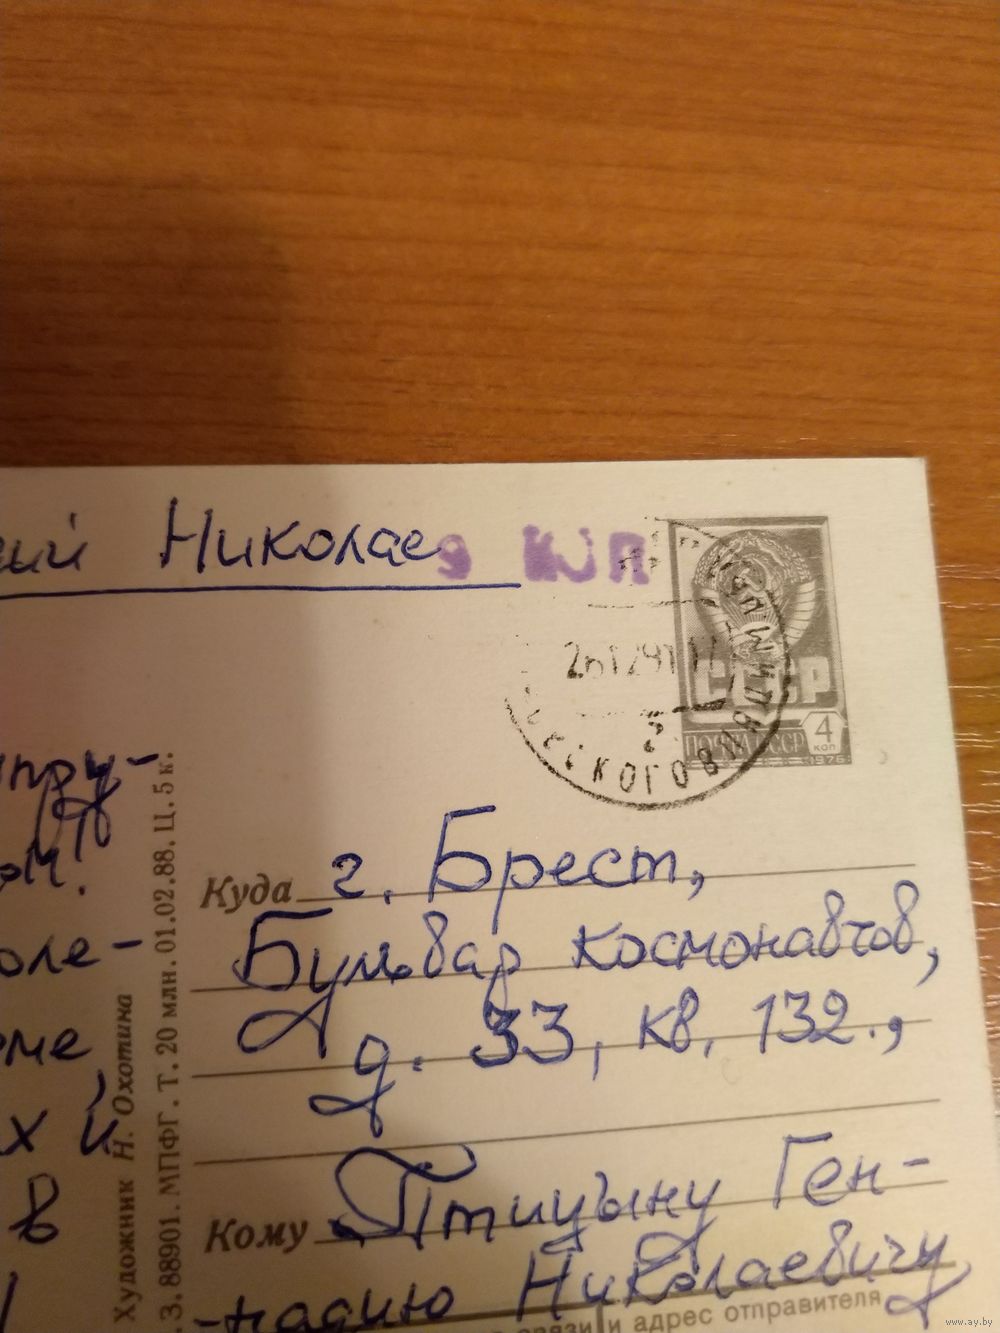 ий Николае
9 КОП
СССР
ПОЧТА СССР
4
коп
1976
пру-
ом!
оле-
оме,
х й
в
Художник Н. Охотина
З. 88901. МПФГ. Т. 20 млн. 01.02.88. Ц. 5 к.
Куда г. Брест,
Бульвар космонавтов,
д. 33, кв. 132.,
Кому Птицыну Ген-
-надию Николаевичу
связи и адрес отправителя
www.ay.by